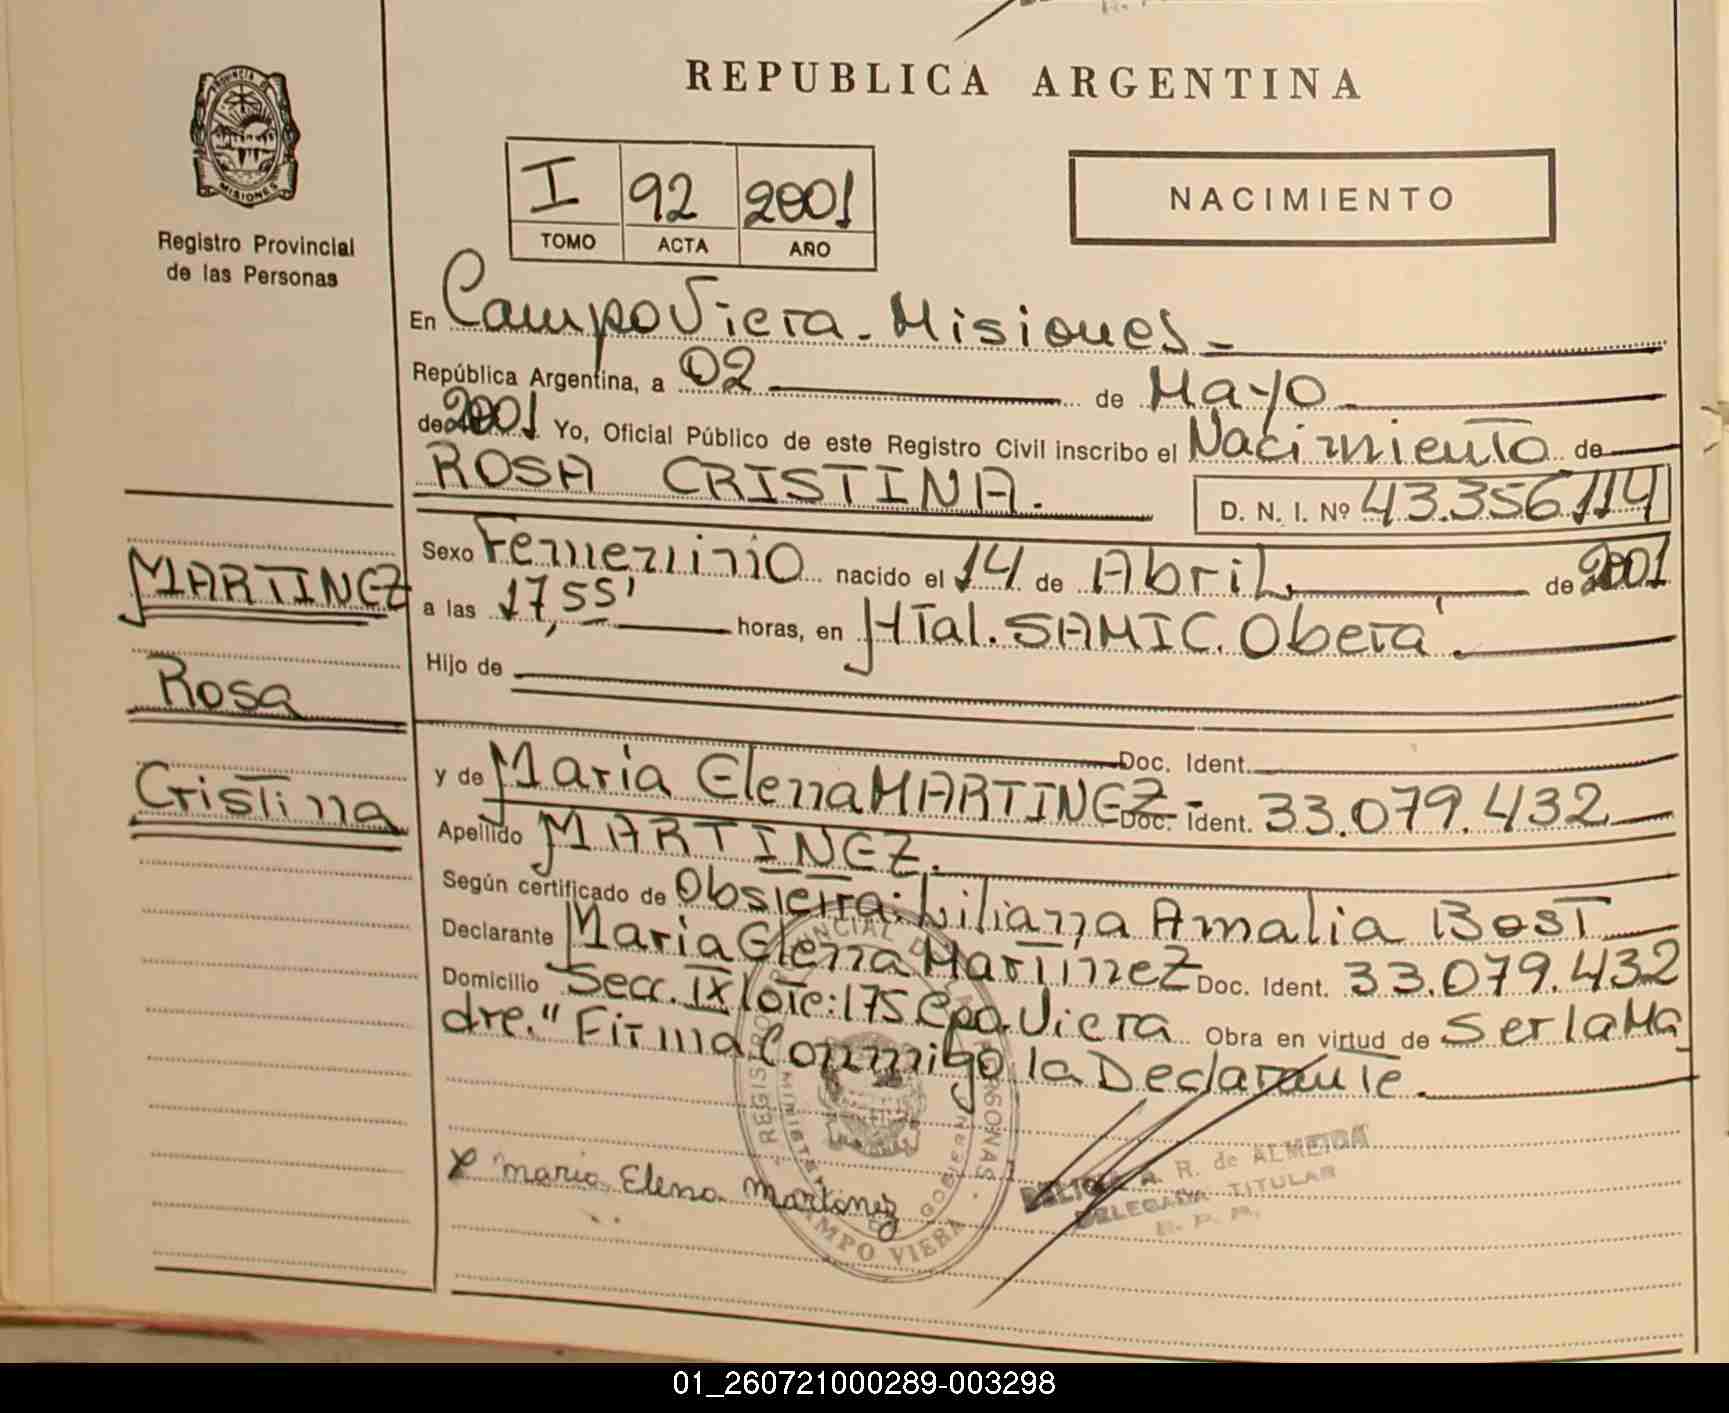 REPUBLICA ARGENTINA
PROVINCIA DE MISIONES
Registro Provincial
de las Personas
I 92 2001
TOMO ACTA AÑO
NACIMIENTO
En Campo Viera - Misiones -
República Argentina, a 02 de Mayo
de 2001 Yo, Oficial Público de este Registro Civil inscribo el Nacimiento de
ROSA CRISTINA. D. N. I. Nº 43.356.114
Sexo Femenino nacido el 14 de Abril de 2001
a las 17,55' horas, en Htal. SAMIC. Oberá.
Hijo de
Doc. Ident.
y de Maria Elena MARTINEZ - Doc. Ident. 33.079.432
Apellido MARTINEZ.
Según certificado de Obstetra: Liliana Amalia Bost
Declarante Maria Elena Martinez Doc. Ident. 33.079.432
Domicilio Secc. IX lote: 175 Cpo. Viera Obra en virtud de Ser la Ma
dre." Firma Conmigo la Declarante.
MARTINEZ
Rosa
Cristina
x maria Elena Martinez
REGISTRO PROVINCIAL DE LAS PERSONAS
CAMPO VIERA
A. R. de ALMEIDA
DELEGADA TITULAR
R. P. P.
01_260721000289-003298